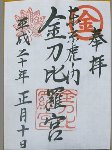 奉拝
金
虎
金刀比羅宮
平成二十年 正月十日